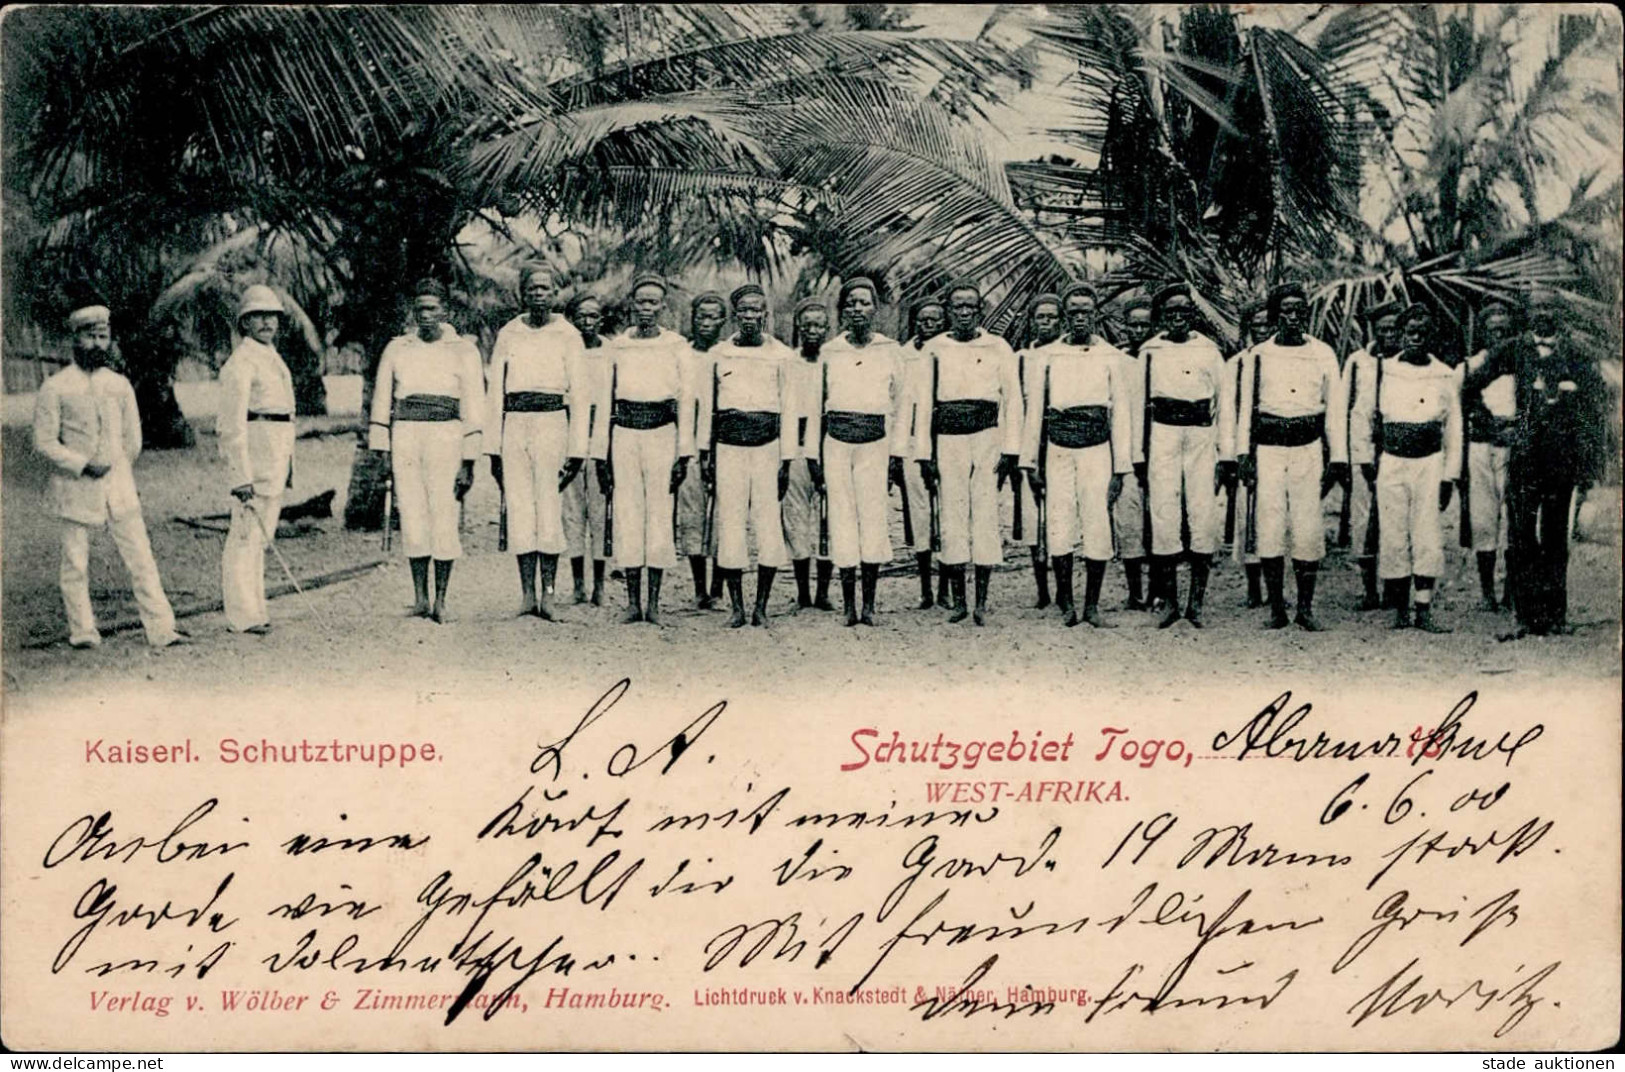 Kaiserl. Schutztruppe.
L. A.
Schutzgebiet Togo,
WEST-AFRIKA.
6. 6. 00
Anbei eine Kart mit meine
Garde wie Gefällt dir die Garde 19 Mann stark.
mit Dolmetscher.. Mit freundlichen Gruß
dein Freund Moritz.
Verlag v. Wölber & Zimmermann, Hamburg. Lichtdruck v. Knackstedt & Näther, Hamburg.
stade auktionen